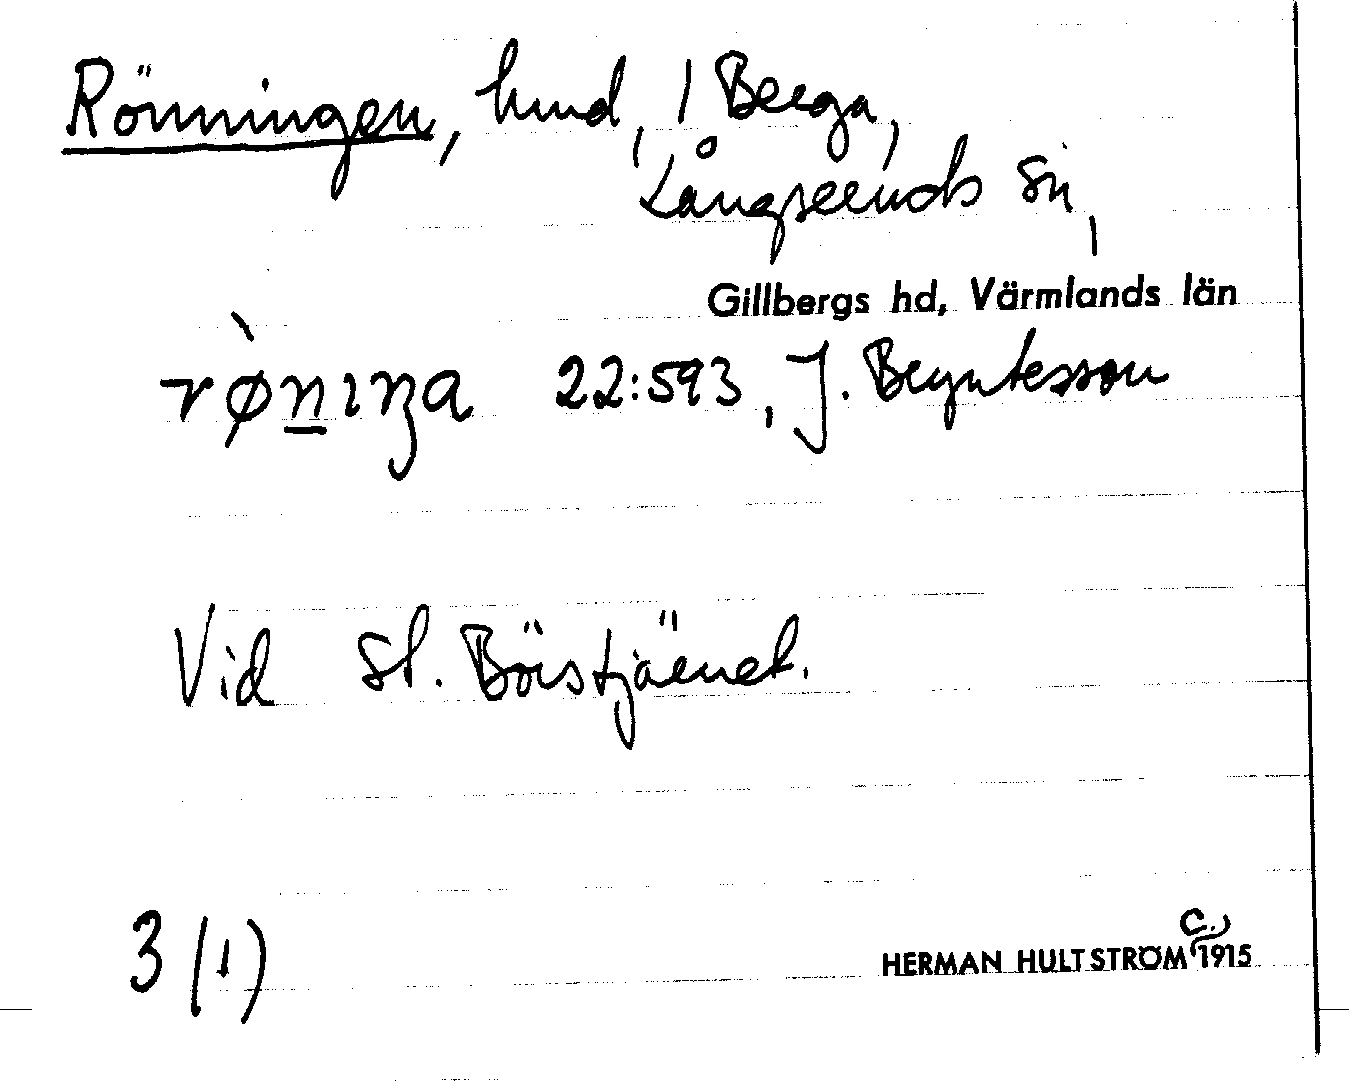 Rönningen, hmd, / Berga,
Långseruds sn,
Gillbergs hd, Värmlands län
rø̀n̲ıŋa 22:593, J. Bengtesson
Vid St. Börstjärnet.
3 (1)
HERMAN HULTSTRÖM c. 1915